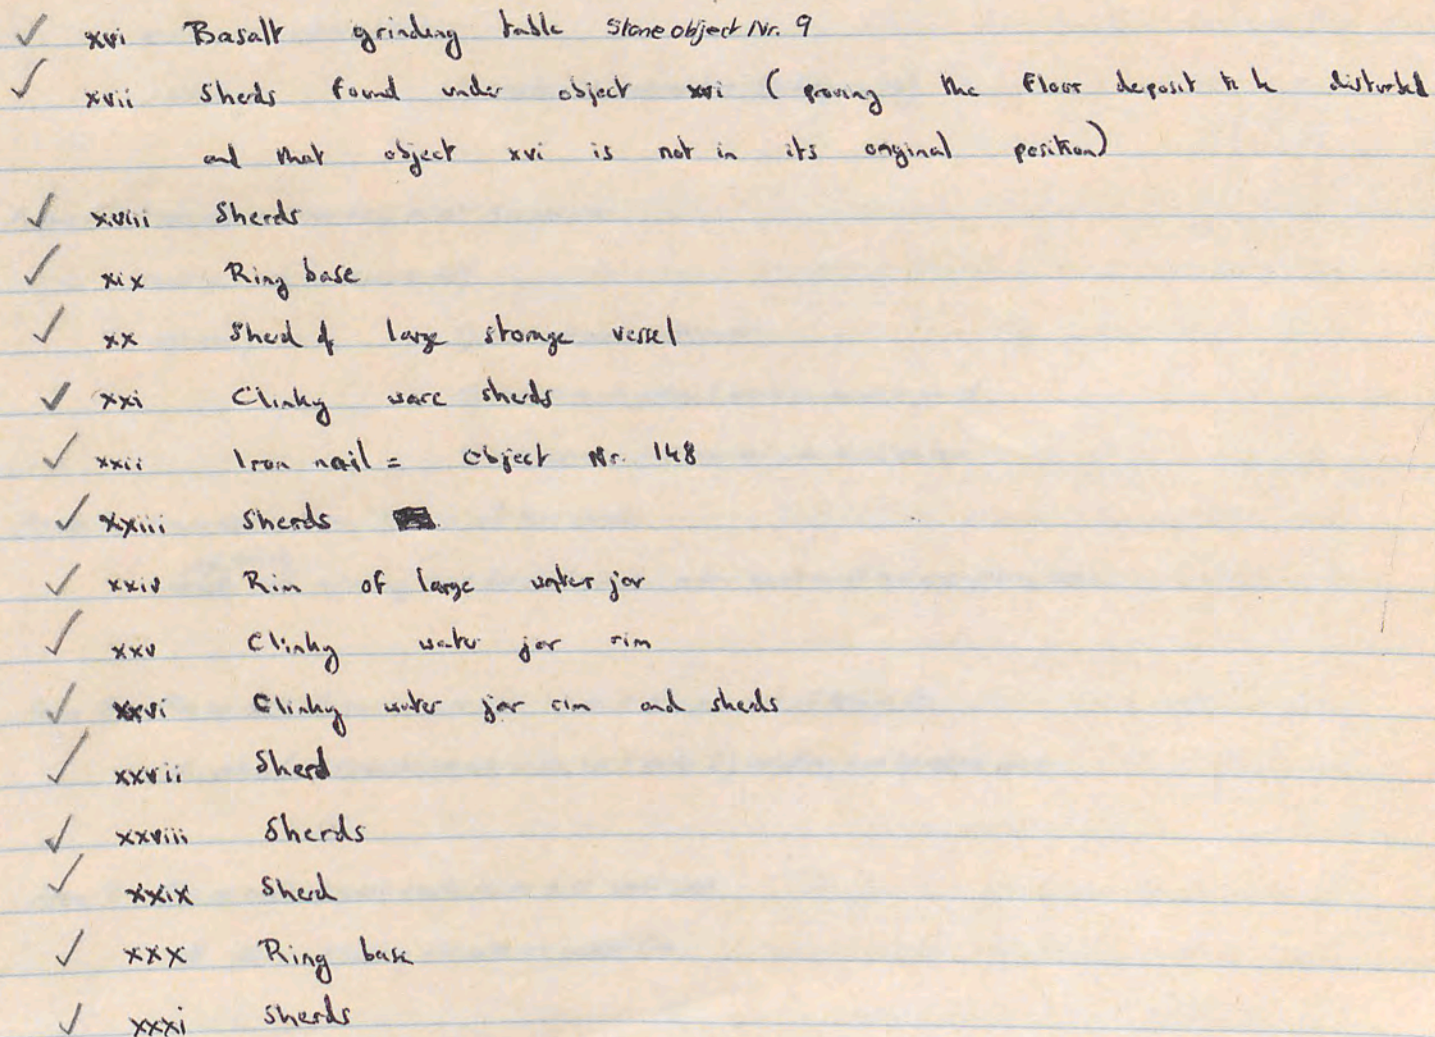 ✓ xvi Basalt grinding table Stone object Nr. 9
✓ xvii Sherds found under object xvi (proving the floor deposit to be disturbed
and that object xvi is not in its original position)
✓ xviii Sherds
✓ xix Ring base
✓ xx Sherd of large storage vessel
✓ xxi Clinky ware sherds
✓ xxii Iron nail = Object Nr. 148
✓ xxiii Sherds
✓ xxiv Rim of large water jar
✓ xxv Clinky water jar rim
✓ xxvi Clinky water jar rim and sherds
✓ xxvii Sherd
✓ xxviii Sherds
✓ xxix Sherd
✓ xxx Ring base
✓ xxxi Sherds